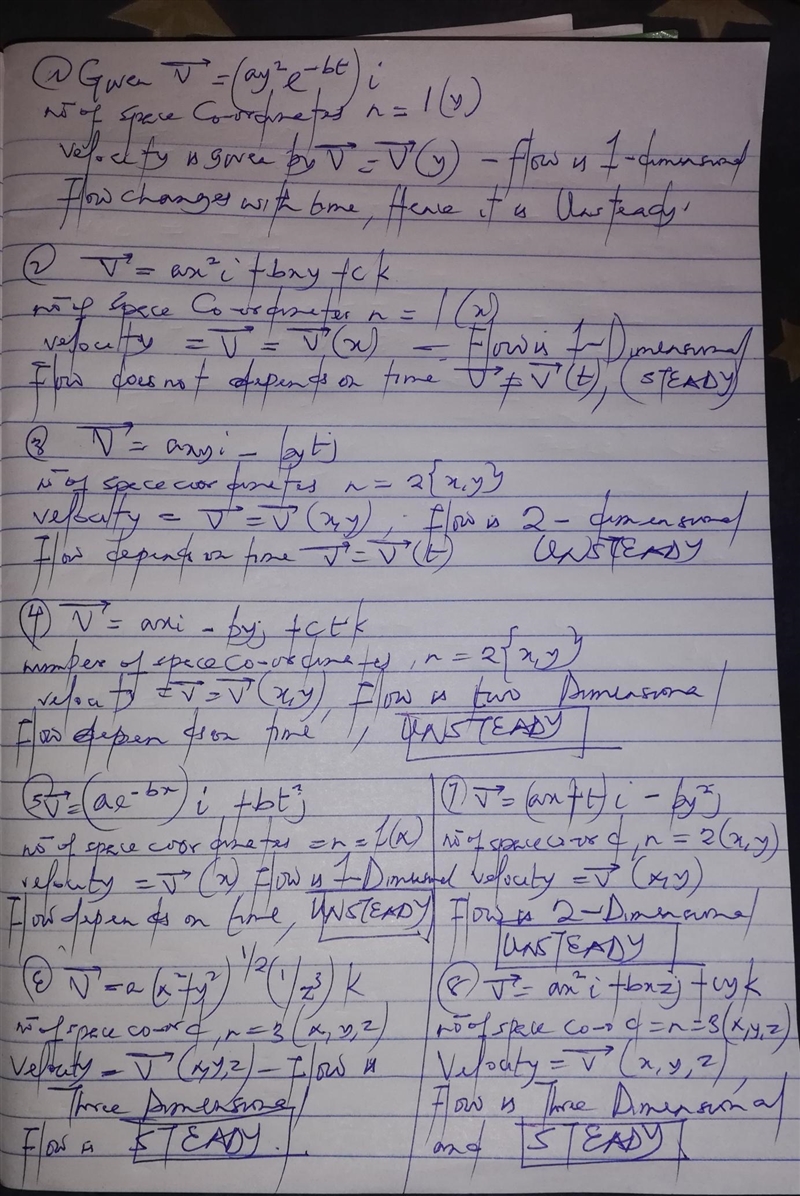 ① Given V⃗ = (ay²e^-bt) i
no of space Co-ordinates n = 1(y)
velocity is given by V⃗ = V⃗(y) - flow is 1-dimensional
Flow changes with time, Hence it is Unsteady.
② V⃗ = ax²i + bxy + ck
no of space Co-ordinates n = 1(x)
velocity = V⃗ = V⃗(x) - Flow is 1-Dimensional
Flow does not depends on time V⃗ ≠ V⃗(t), (STEADY)
③ V⃗ = axyi - bytj
no of space coordinates n = 2{x,y}
velocity = V⃗ = V⃗(x,y), Flow is 2-dimensional
Flow depends on time V⃗ = V⃗(t) UNSTEADY
④ V⃗ = axi - byj + ctk
number of space Co-ordinates, n = 2{x,y}
velocity = V⃗ = V⃗(x,y), Flow is two Dimensional
Flow depends on time, UNSTEADY
⑤ V⃗ = (ae^-bx) i + bt²j
no of space coordinates = n = 1(x)
velocity = V⃗(x) Flow is 1-Dimensional
Flow depends on time, UNSTEADY
⑥ V⃗ = a(x²+y²)^1/2 (1/z³) k
no of space co-ord, n = 3 (x,y,z)
Velocity = V⃗(x,y,z) - Flow is
Three Dimensional
Flow is STEADY.
⑦ V⃗ = (ax+t)i - by²j
no of space co-ord, n = 2(x,y)
velocity = V⃗(x,y)
Flow is 2-Dimensional
UNSTEADY
⑧ V⃗ = ax²i + bxzj + cyk
no of space Co-o d = n = 3(x,y,z)
Velocity = V⃗(x,y,z),
Flow is Three Dimensional
and STEADY